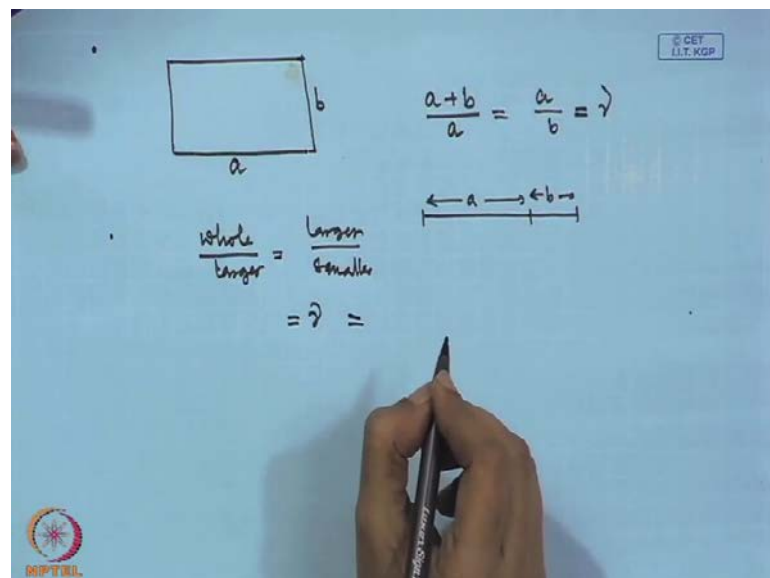 © CET
I.I.T. KGP
b
a
a+b/a = a/b = γ
a b
whole/larger = larger/smaller
= γ =
NPTEL